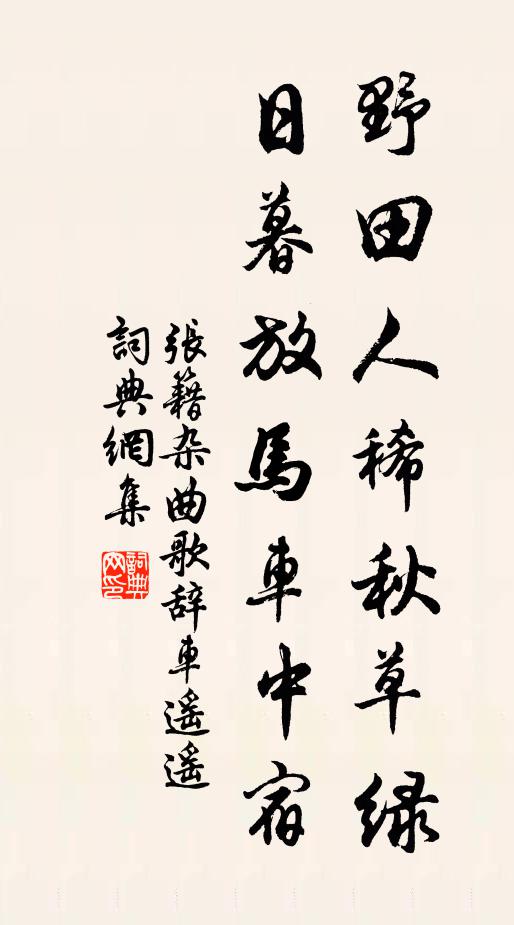 野田人稀秋草绿
日暮放馬車中宿
張籍杂曲歌辞車遥遥
詞典網集
詞典網印